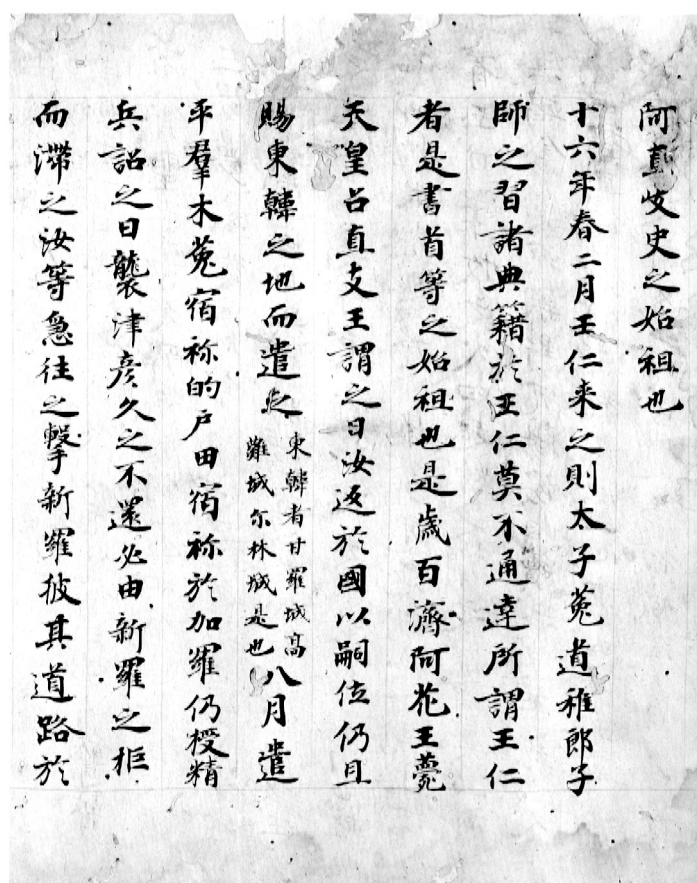 阿直岐史之始祖也
十六年春二月王仁来之則太子菟道稚郎子
師之習諸典籍於王仁莫不通達所謂王仁
者是書首等之始祖也是歳百濟阿花王薨
天皇召直支王謂之曰汝返於國以嗣位仍且
賜東韓之地而遣之
東韓者甘羅城高
難城尓林城是也
八月遣
平羣木菟宿祢的戸田宿祢於加羅仍授精
兵詔之曰襲津彦久之不還必由新羅之拒
而滞之汝等急往之撃新羅披其道路於